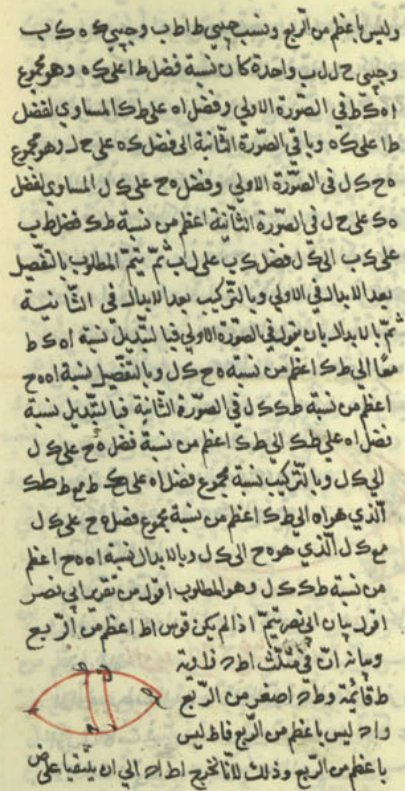 وليس باعظم من الربع ونسب جيبي ط اط ب وجيبي ك ه ك ب
وجيبي ح ل ل ب واحدة كان نسبة فضل ط ا على ك ه وهو مجموع
ا ه ك ط في الصورة الاولي وفضل ا ه على ط ك المساوي لفضل
ط ا على ك ه وباقي الصورة الثانية الى فضل ك ه على ح ل وهو مجموع
ه ح ك ل في الصورة الاولي وفضل ه ح على ك ل المساوي لفضل
ه ك على ح ل في الصورة الثانية اعظم من نسبة ط ك فضل ط ب
على ك ب الى ك ل فضل ك ب على ل ب ثم يتم المطلوب بالتفصيل
بعد الابدال في الاولي وبالتركيب بعد الابدال في الثانية
ثم بالابدال بان نقول في الصورة الاولي فبالتبديل نسبة ا ه ك ط
معا الي ط ك اعظم من نسبة ه ح ك ل وبالتفصيل نسبة ا ه ه ح
اعظم من نسبة ط ك ك ل في الصورة الثانية فبالتبديل نسبة
فضل ا ه على ط ك الي ط ك اعظم من نسبة فضل ه ح على ك ل
الي ك ل وبالتركيب نسبة مجموع فضل ا ه على ط ك مع ط ك
الذي هو ا ه الي ط ك اعظم من نسبة مجموع فضل ه ح على ك ل
مع ك ل الذي هو ه ح الى ك ل وبالابدال نسبة ا ه ه ح اعظم
من نسبة ط ك ك ل وهو المطلوب اقول من تقرير ابي نصر
اقول بيان ابي نصر يتم اذا لم يكن قوس ا ط اعظم من الربع
وبيانه ان في مثلث ا ط ه زاوية
ط قائمة و ط ه اصغر من الربع
و ا ه ليس باعظم من الربع فا ط ليس
باعظم من الربع وذلك لانا نخرج ا ط ا ه الي ان يلتقيا على ض